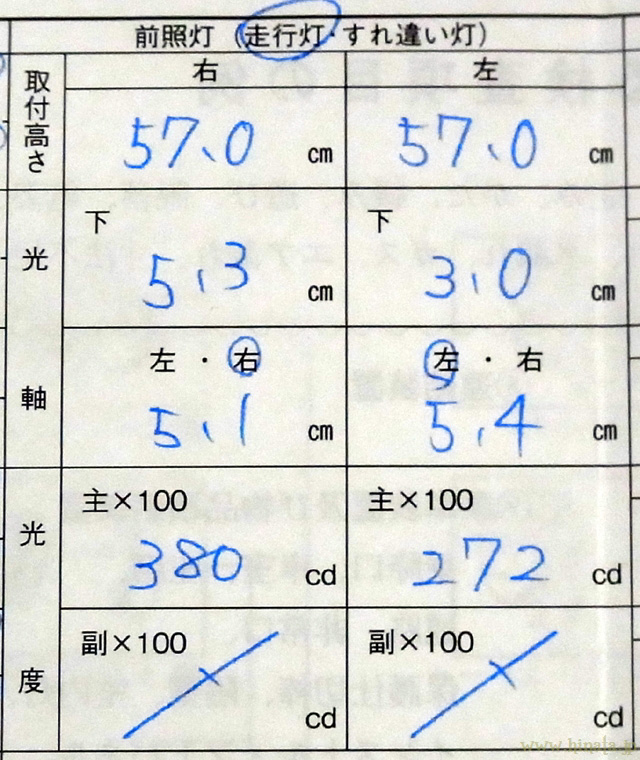 前照灯（走行灯・すれ違い灯）
右 左
取付高さ 57.0 cm 57.0 cm
光軸
下 下
5.3 cm 3.0 cm
左・右 左・右
5.1 cm 5.4 cm
光度
主×100 主×100
380 cd 272 cd
副×100 副×100
cd cd